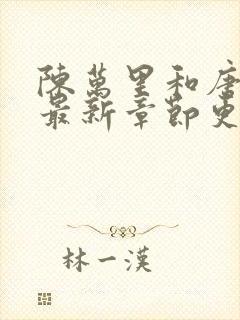 陳萬里和唐
最新章節更
林一漢